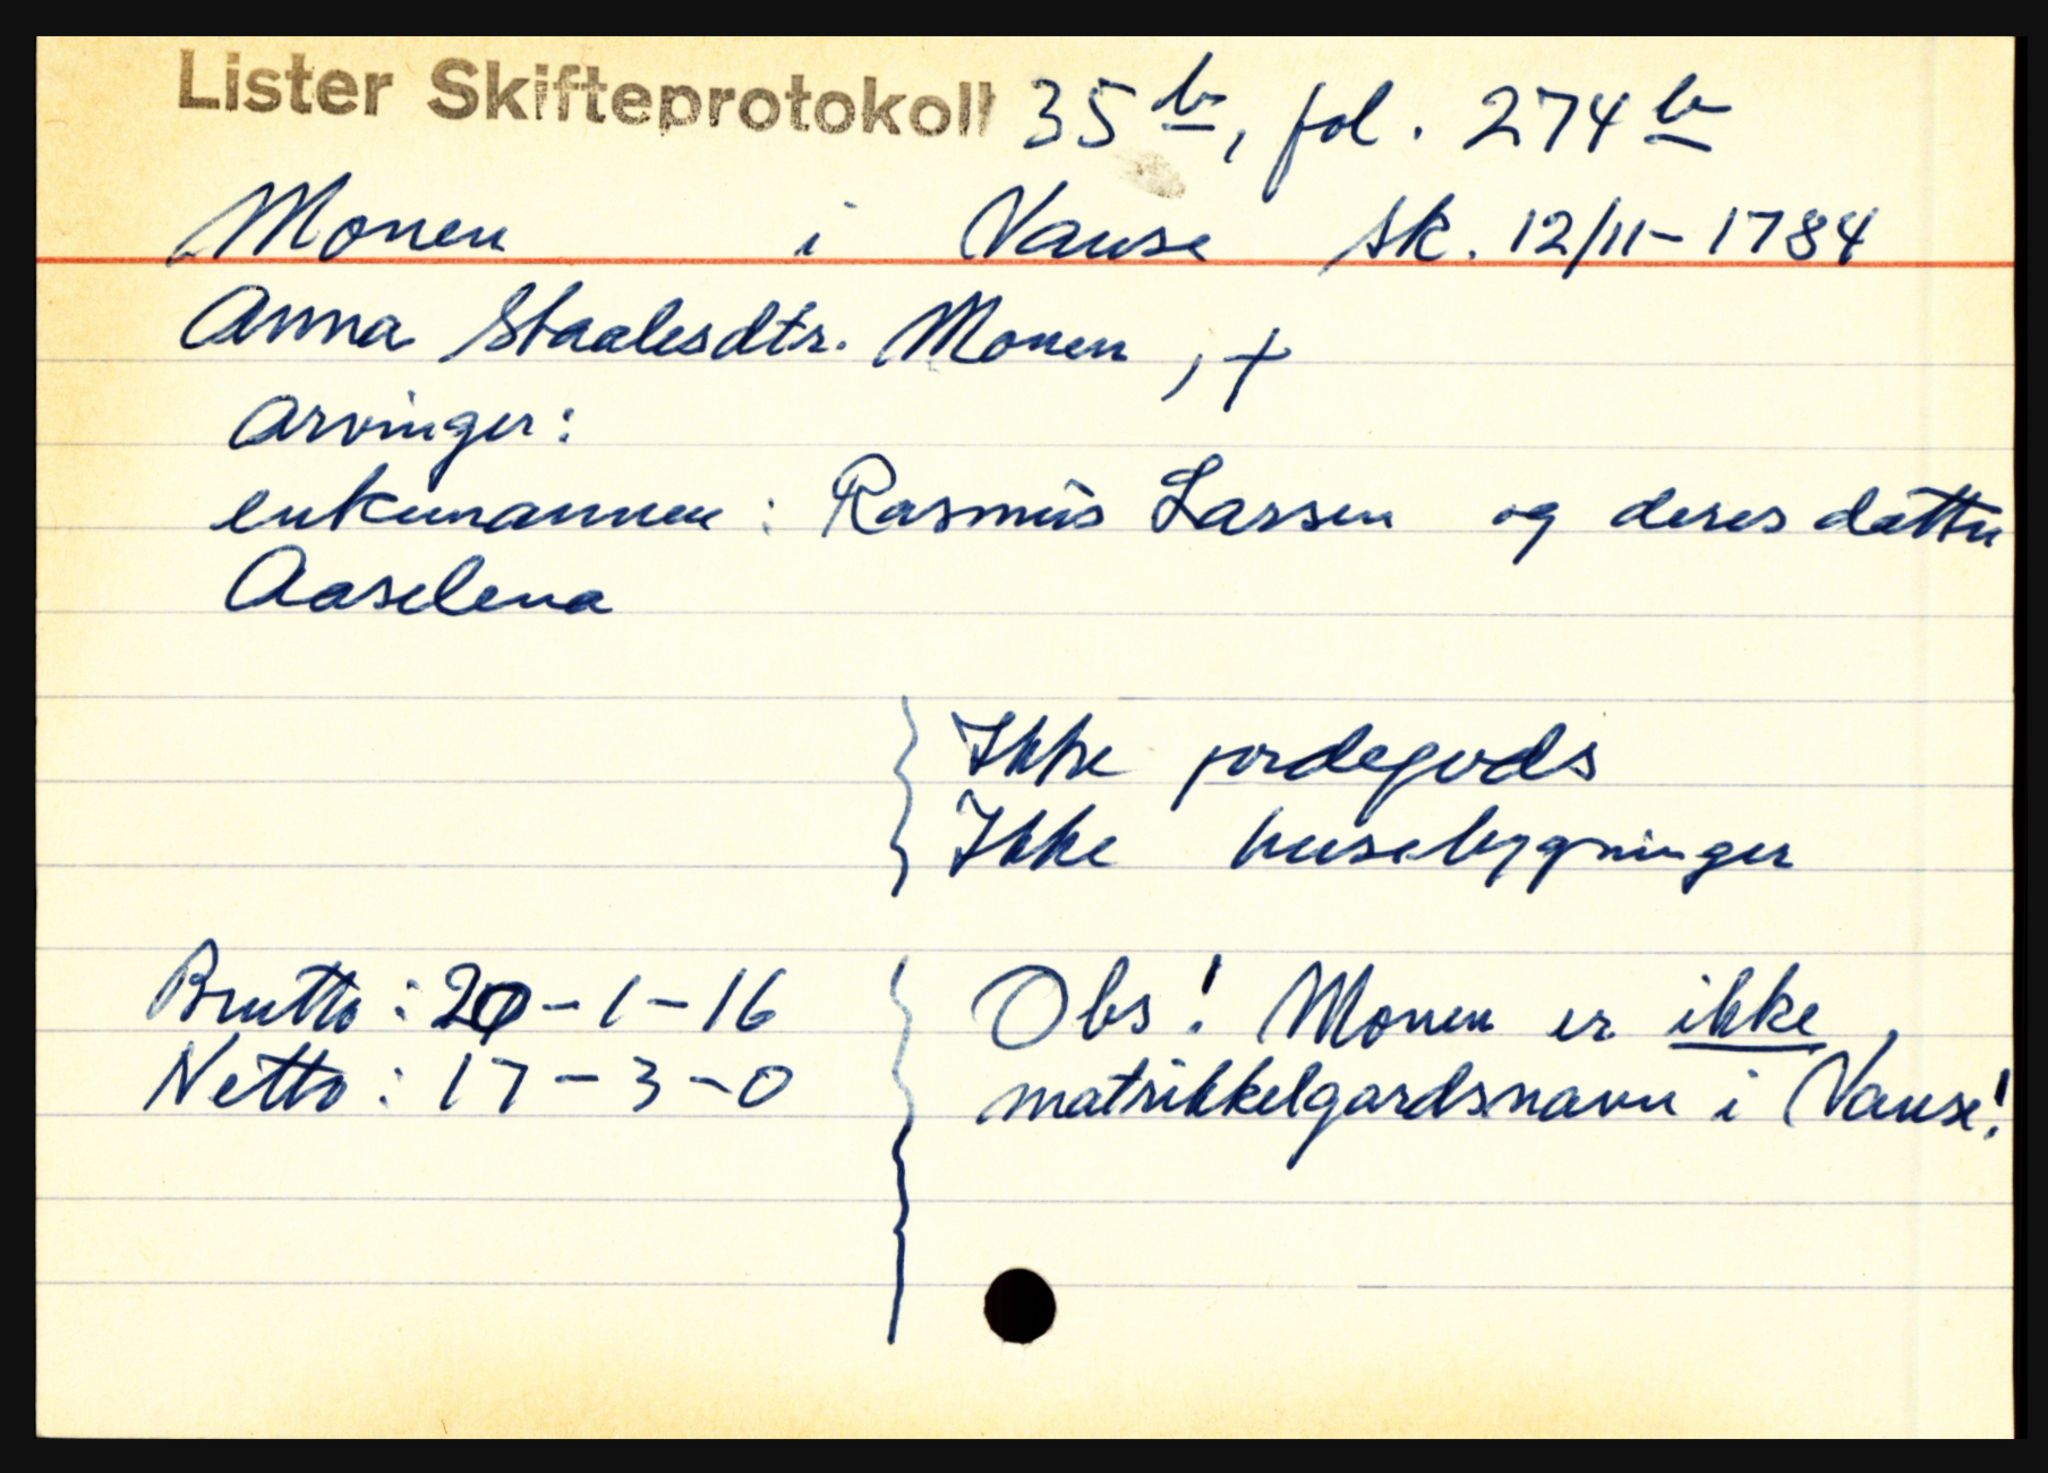 Lister Skifteprotokoll 35 b, fol. 274 b
Monen i Vanse sk. 12/11-1784
Anna Staalesdtr. Monen, +
Arvinger:
enkemannen: Rasmus Lassen og deres datter
Aaselena
Ikke jordegods
Ikke husebygninger
Brutto: 20-1-16
Netto: 17-3-0
Obs! Monen er ikke
matrikkelgardsnavn i Vanse!